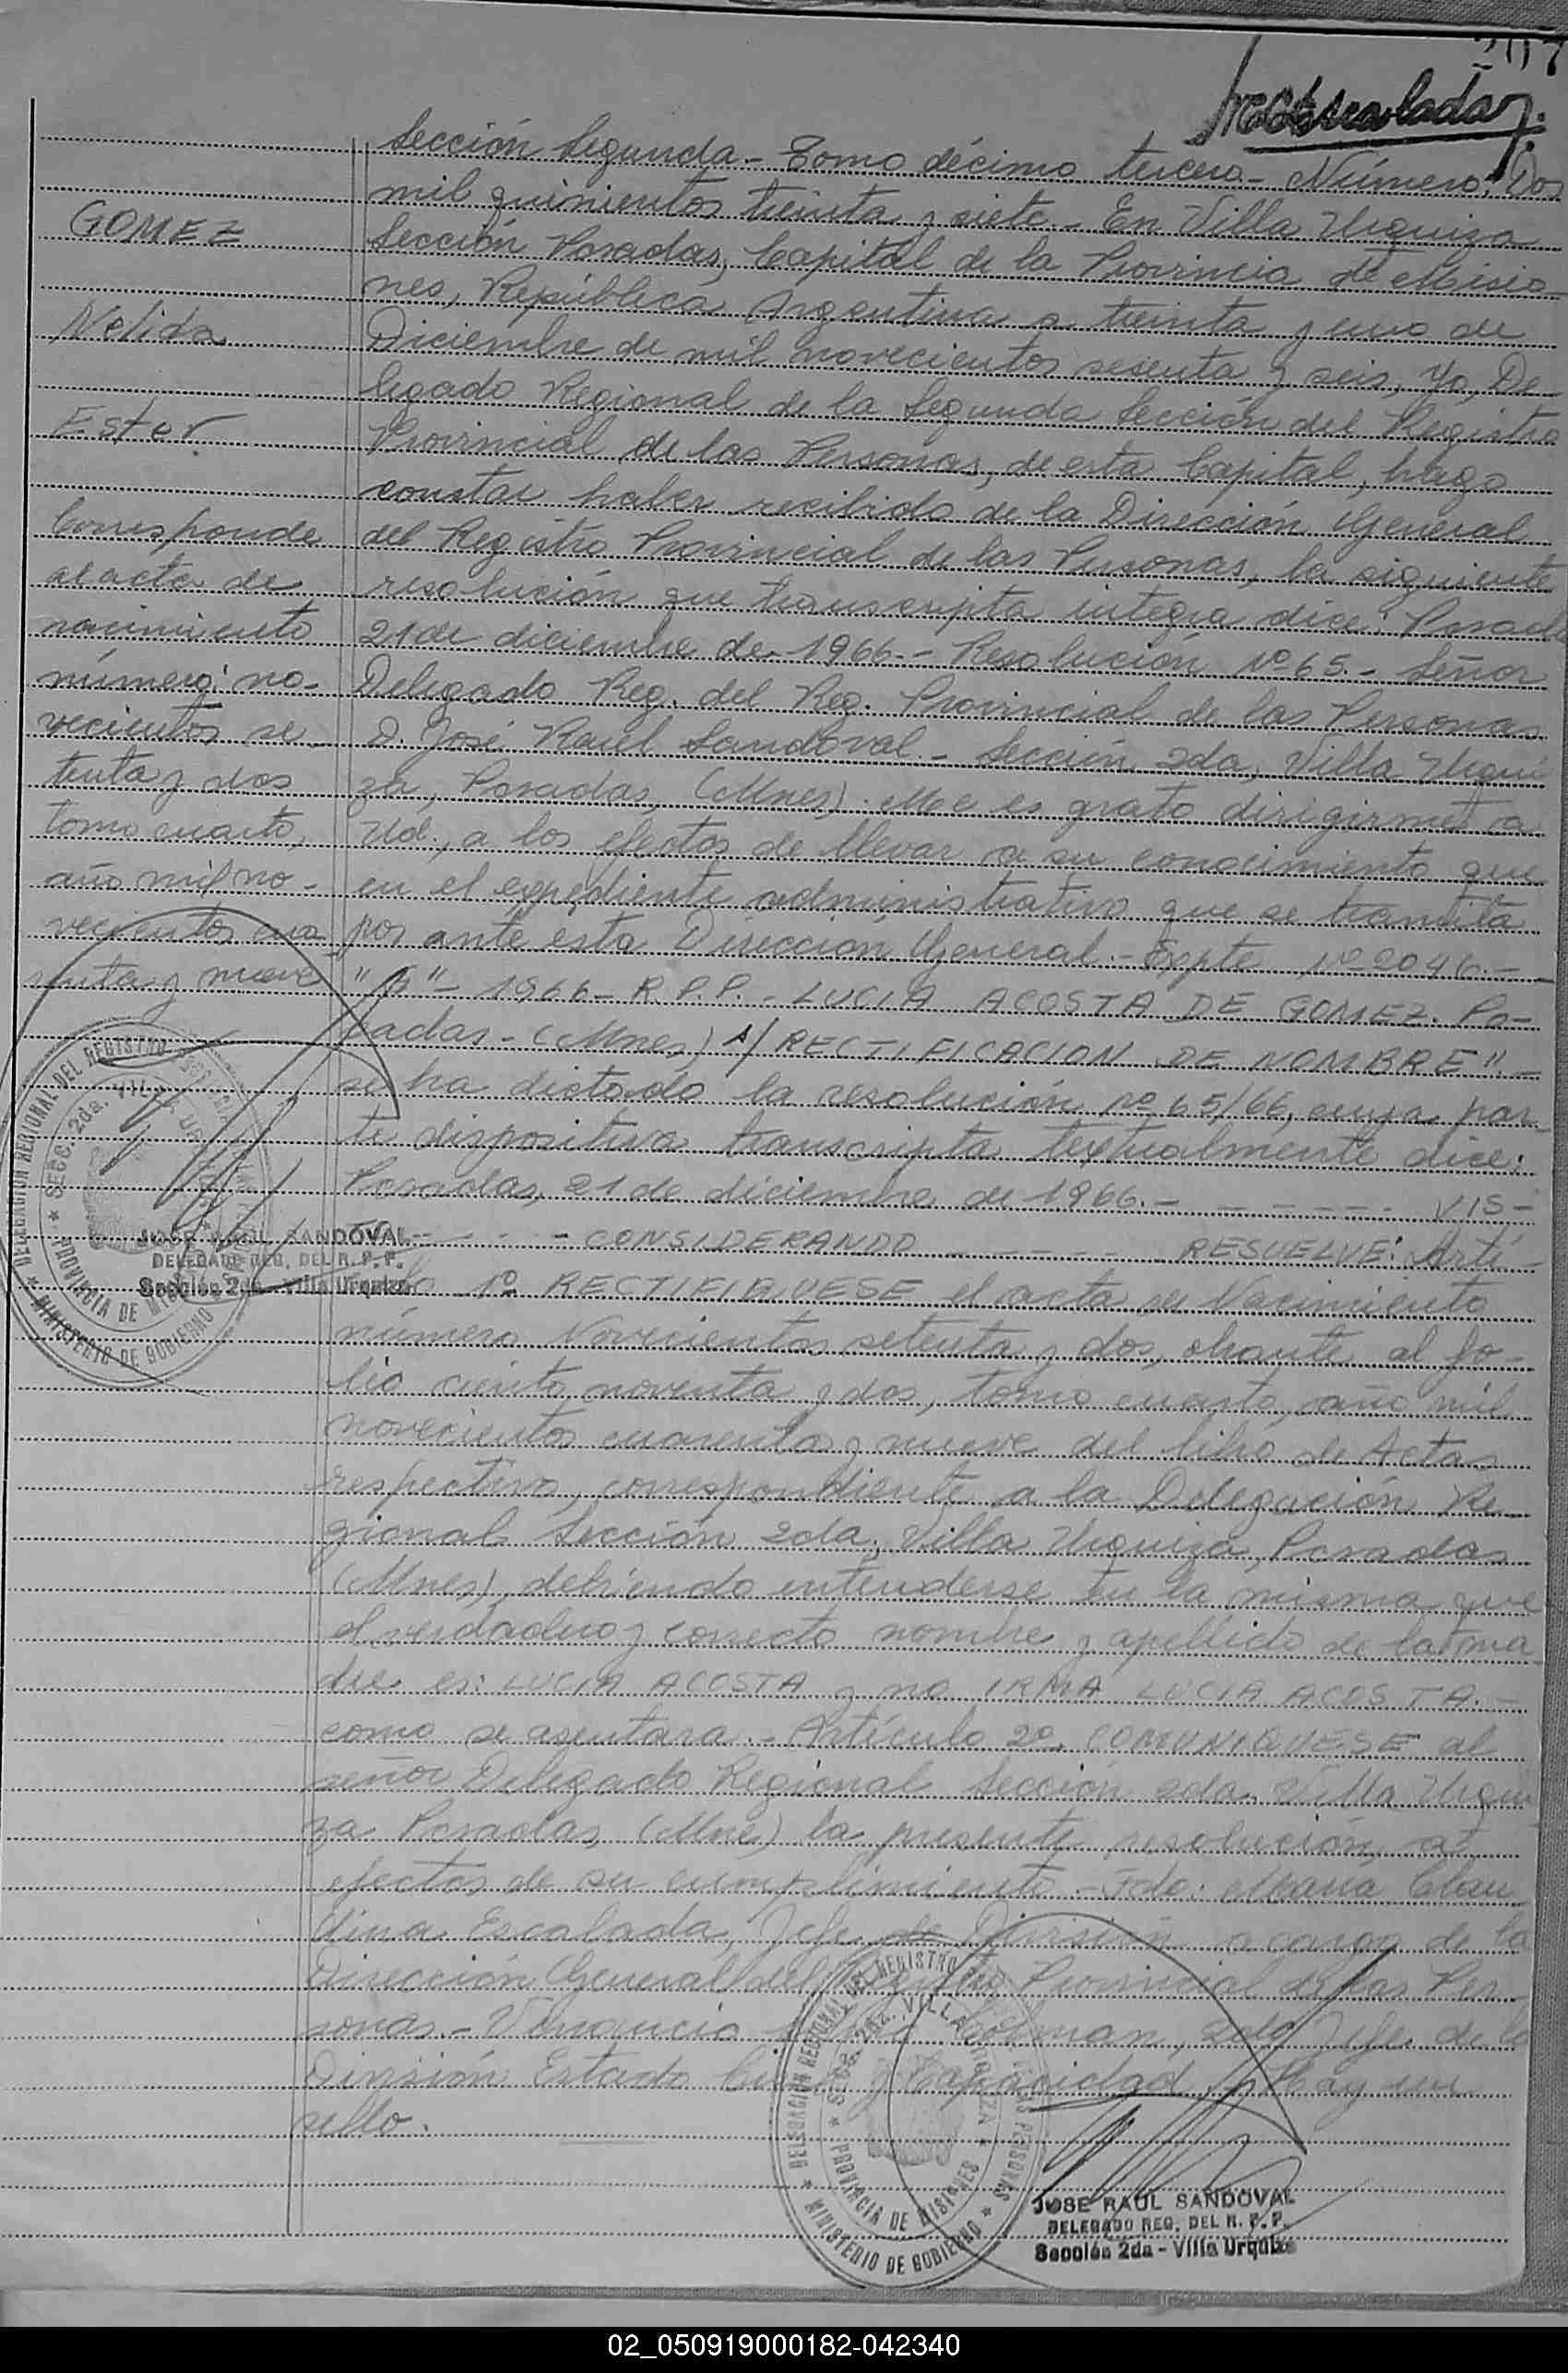 207
Sección Segunda.- Tomo décimo tercero.- Número: Dos
mil quinientos treinta y siete.- En Villa Urquiza
Sección Posadas, Capital de la Provincia de Misio-
nes, República Argentina a treinta y uno de
Diciembre de mil novecientos sesenta y seis, Yo, De-
legado Regional de la Segunda Sección del Registro
Provincial de las Personas, de esta Capital, hago
constar haber recibido de la Dirección General
del Registro Provincial de las Personas, la siguiente
resolución que transcripta integra dice: Posadas
21 de diciembre de 1966.- Resolución Nº 65.- Señor
Delegado Reg. del Reg. Provincial de las Personas
D. José Raul Sandoval.- Sección 2da, Villa Urqui
za, Posadas, (Mnes). Me es grato dirigirme a
Ud., a los efectos de llevar a su conocimiento que
en el expediente administrativo que se tramita
por ante esta Dirección General.- Expte nº 2046.-
"A"- 1966- R.P.P.- LUCIA ACOSTA DE GOMEZ. Po-
sadas.- (Mnes) s/ RECTIFICACION DE NOMBRE".-
se ha dictado la resolución nº 65/66, cuya par-
te dispositiva transcripta textualmente dice:
Posadas, 21 de diciembre de 1966.- - - - - - VIS-
- - - - CONSIDERANDO - - - - - RESUELVE: Artí-
1º RECTIFIQUESE el acta de Nacimiento
número Novecientos setenta y dos, obrante al fo-
lio ciento noventa y dos, tomo cuarto, año mil
novecientos cuarenta y nueve del libro de Actas
respectivo, correspondiente a la Delegación Re-
gional Sección 2da, Villa Urquiza, Posadas
(Mnes), debiendo entenderse en la misma que
el verdadero y correcto nombre y apellido de la ma-
dre es: LUCIA ACOSTA y no IRMA LUCIA ACOSTA.-
como se asentara.- Artículo 2º. COMUNIQUESE al
señor Delegado Regional Sección 2da. Villa Urqui
za Posadas, (Mnes) la presente resolución, a
efectos de su cumplimiento.- Fdo: María Clau
dina Escalada, Jefe de División a cargo de la
Dirección General del Registro Provincial de las Per-
sonas.- Venancio 2do Jefe de la
División Estado Civil y Capacidad. Hay un
sello.
GOMEZ
Nelida
Ester
Corresponde
al acta de
nacimiento
número: no-
vecientos se-
tenta y dos
tomo cuarto,
año mil no-
vecientos cua-
renta y nueve
DELEGACION REGIONAL DEL REGISTRO
SECC. 2da. VILLA URQUIZA
PROVINCIA DE MISIONES
MINISTERIO DE GOBIERNO
JOSE RAUL SANDOVAL
DELEGADO REG. DEL R. P. P.
Sección 2da - Villa Urquiza
DELEGACION REGIONAL DEL REGISTRO
LAS PERSONAS
SECC. 2da. VILLA URQUIZA
PROVINCIA DE MISIONES
MINISTERIO DE GOBIERNO
JOSE RAUL SANDOVAL
DELEGADO REG. DEL R. P. P.
Sección 2da - Villa Urquiza
02_050919000182-042340